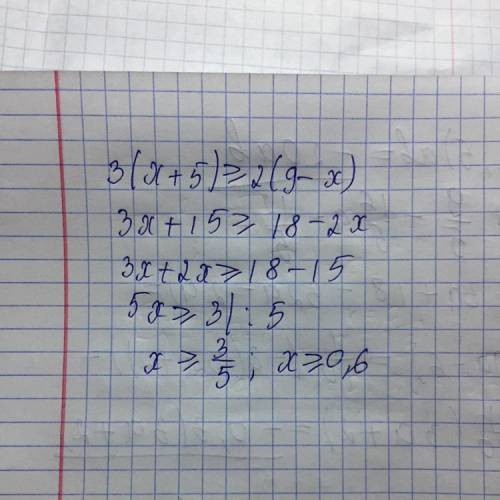 3(x+5)⩾2(9-x)
3x+15⩾18-2x
3x+2x⩾18-15
5x⩾3|:5
x⩾3/5; x⩾0,6